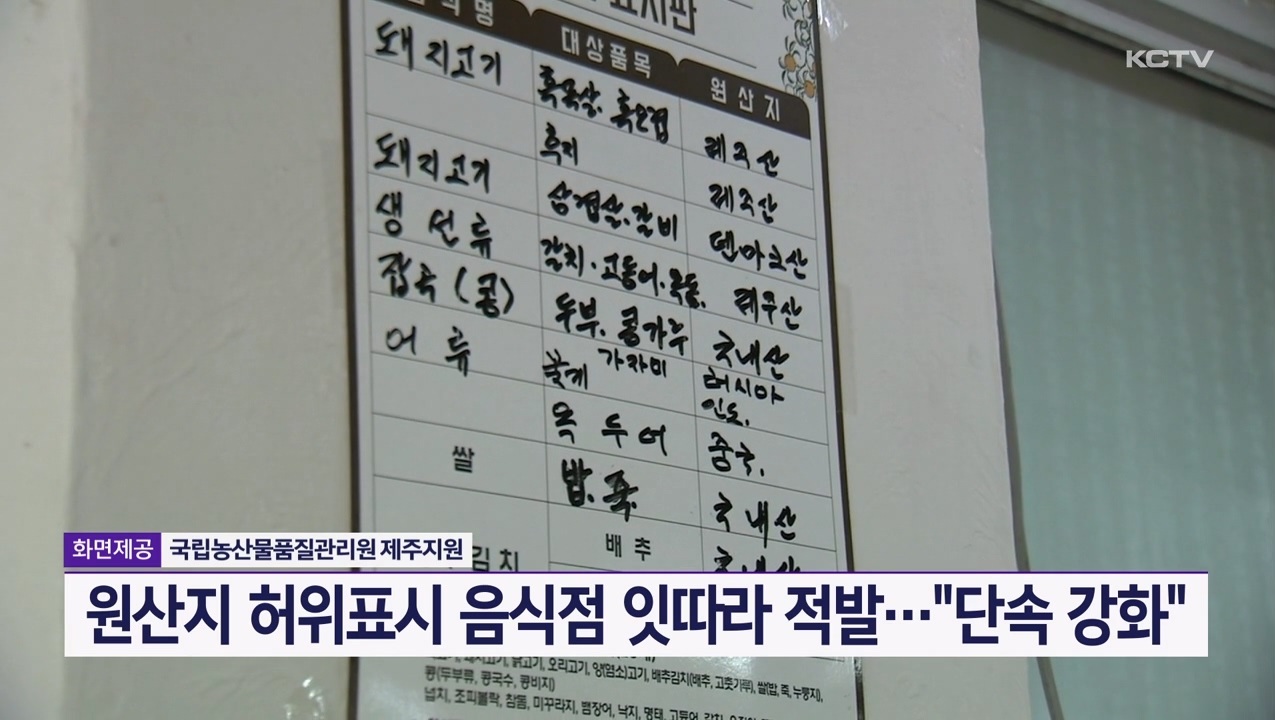 KCTV
표시판
대상품목
원산지
돼지고기
흑목살. 흑오겹
제주산
흑지
제주산
돼지고기
삼겹살.갈비
덴마크산
생선류
갈치.고등어.옥돔.
제주산
잡곡(콩)
두부.콩가루
국내산
어류
가자미
러시아
꽃게
인도.
옥두어
중국.
쌀
밥.죽.
국내산
김치
배추
국내산
화면제공 국립농산물품질관리원 제주지원
원산지 허위표시 음식점 잇따라 적발…"단속 강화"
돼지고기, 닭고기, 오리고기, 양(염소)고기, 배추김치(배추, 고춧가루), 쌀(밥, 죽, 누룽지),
콩(두부류, 콩국수, 콩비지)
넙치, 조피볼락, 참돔, 미꾸라지, 뱀장어, 낙지, 명태, 고등어, 갈치,